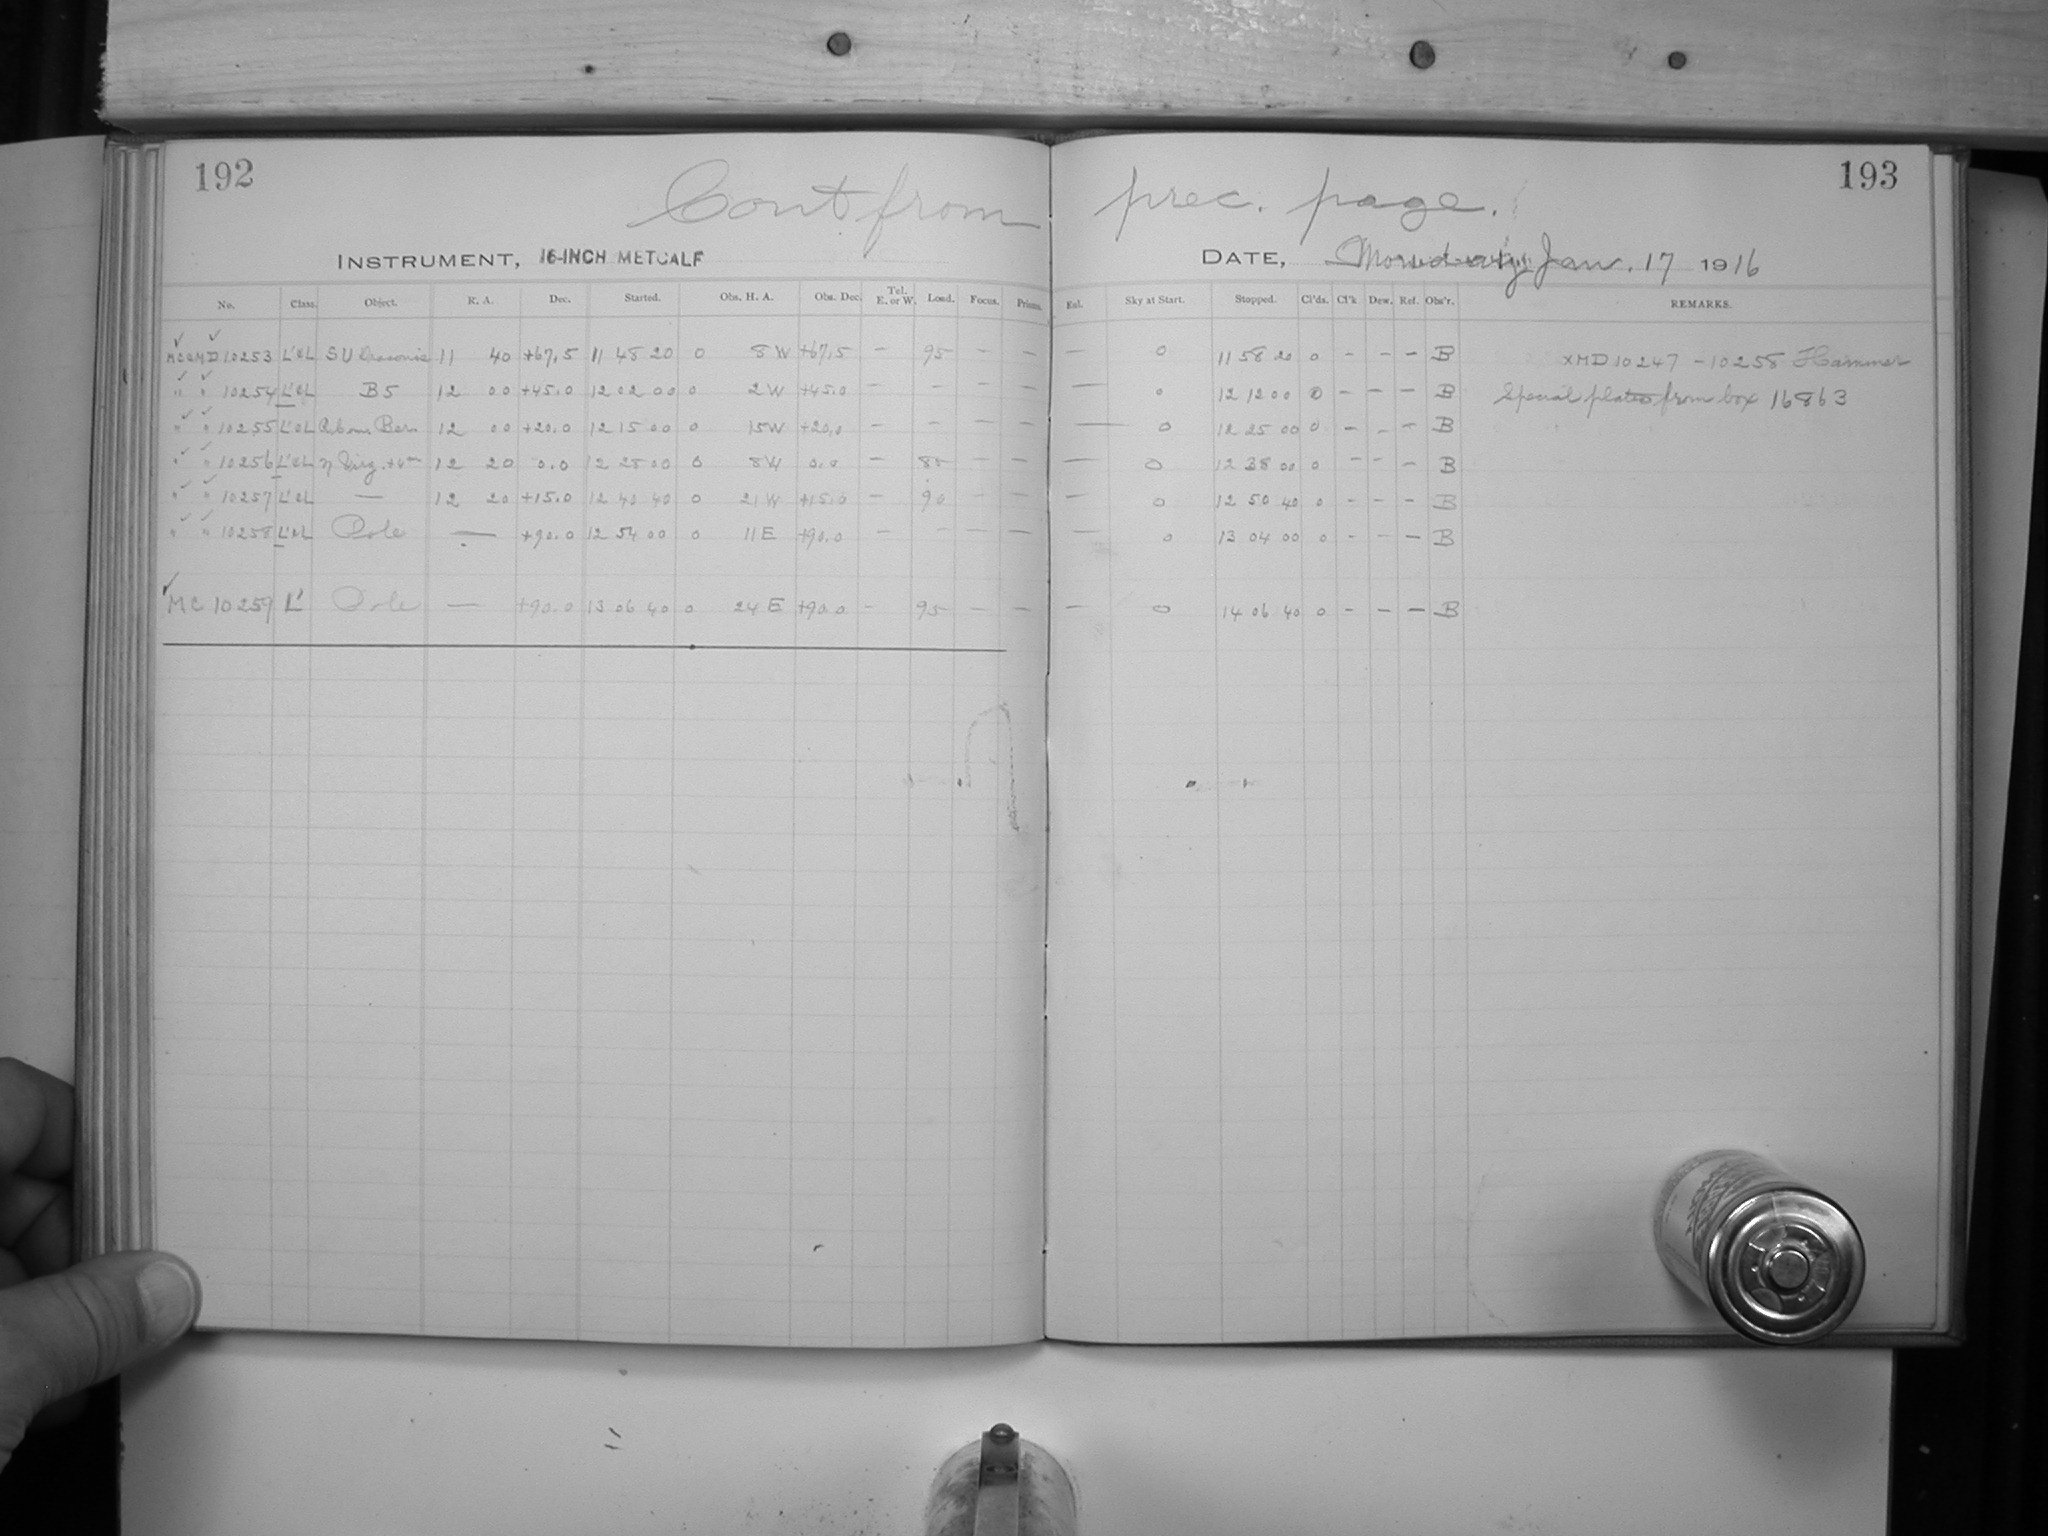 192
193
Cont from prec. page.
INSTRUMENT, 16-INCH METCALF
DATE, Monday Jan. 17 1916
No. Class. Object. R. A. Dec. Started. Obs. H. A. Obs. Dec. Tel. E. or W. Load. Focus. Prisms. Eal. Sky at Start. Stopped. Cl'ds. Cl'k Dew. Ref. Obs'r. REMARKS.
MC&MD 10253 L'&L SU Draconis 11 40 +67.5 11 48 20 0 8 W +67.5 — 95 — — — 0 11 58 20 0 — — — B XMD 10247 – 10258 Hammer
" " 10254 L'&L B5 12 00 +45.0 12 02 00 0 2 W +45.0 — — — — — 0 12 12 00 0 — — — B Special plates from box 16863
" " 10255 L'&L 12 00 +20.0 12 15 00 0 15 W +20.0 — — — — — 0 12 25 00 0 — — — B
" " 10256 L'&L η Virg. 12 20 0.0 12 28 00 0 8 W 0.0 — 85 — — — 0 12 38 00 0 — — — B
" " 10257 L'&L — 12 20 +15.0 12 40 40 0 21 W +15.0 — 90 — — — 0 12 50 40 0 — — — B
" " 10258 L'&L Pole — +90.0 12 54 00 0 11 E +90.0 — — — — — 0 13 04 00 0 — — — B
MC 10259 L' Pole — +90.0 13 06 40 0 24 E +90.0 — 95 — — — 0 14 06 40 0 — — — B